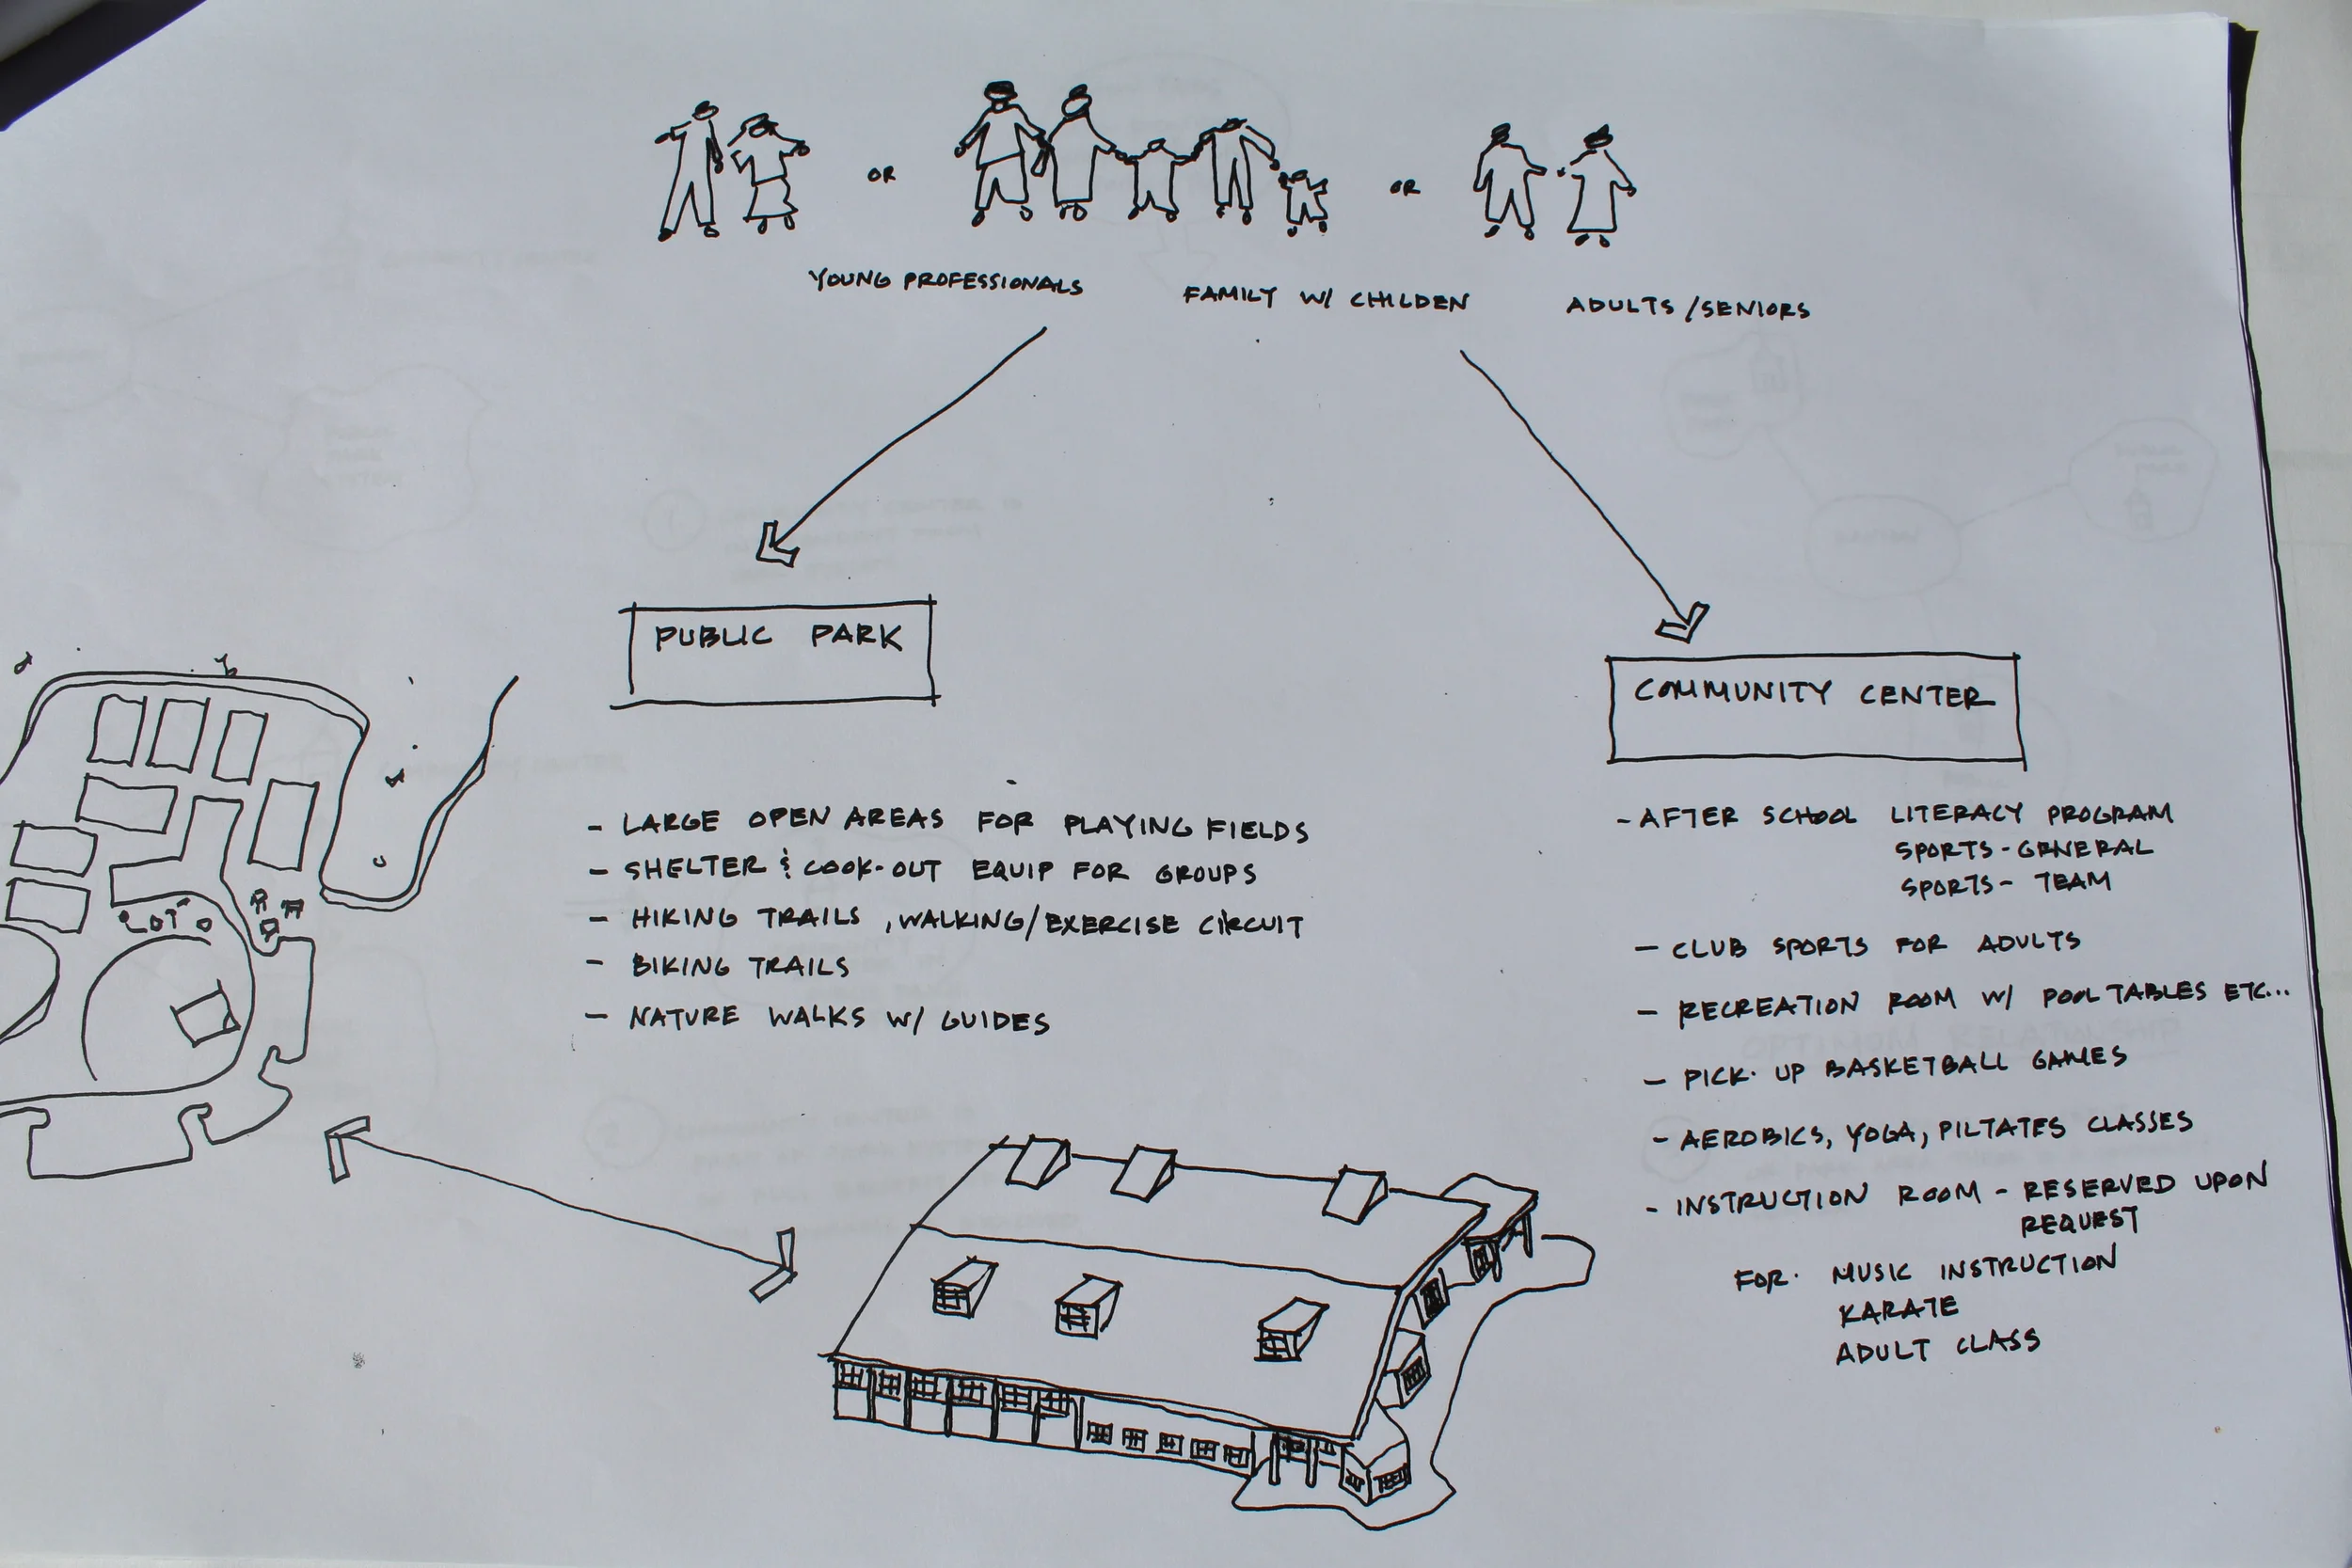 OR
OR
YOUNG PROFESSIONALS
FAMILY W/ CHILDEN
ADULTS/SENIORS
PUBLIC PARK
- LARGE OPEN AREAS FOR PLAYING FIELDS
- SHELTER & COOK-OUT EQUIP FOR GROUPS
- HIKING TRAILS, WALKING/EXERCISE CIRCUIT
- BIKING TRAILS
- NATURE WALKS W/ GUIDES
COMMUNITY CENTER
- AFTER SCHOOL LITERACY PROGRAM
SPORTS - GENERAL
SPORTS - TEAM
- CLUB SPORTS FOR ADULTS
- RECREATION ROOM W/ POOL TABLES ETC...
- PICK-UP BASKETBALL GAMES
- AEROBICS, YOGA, PILTATES CLASSES
- INSTRUCTION ROOM - RESERVED UPON
REQUEST
FOR. MUSIC INSTRUCTION
KARATE
ADULT CLASS
OPTIMUM RELATIONSHIP